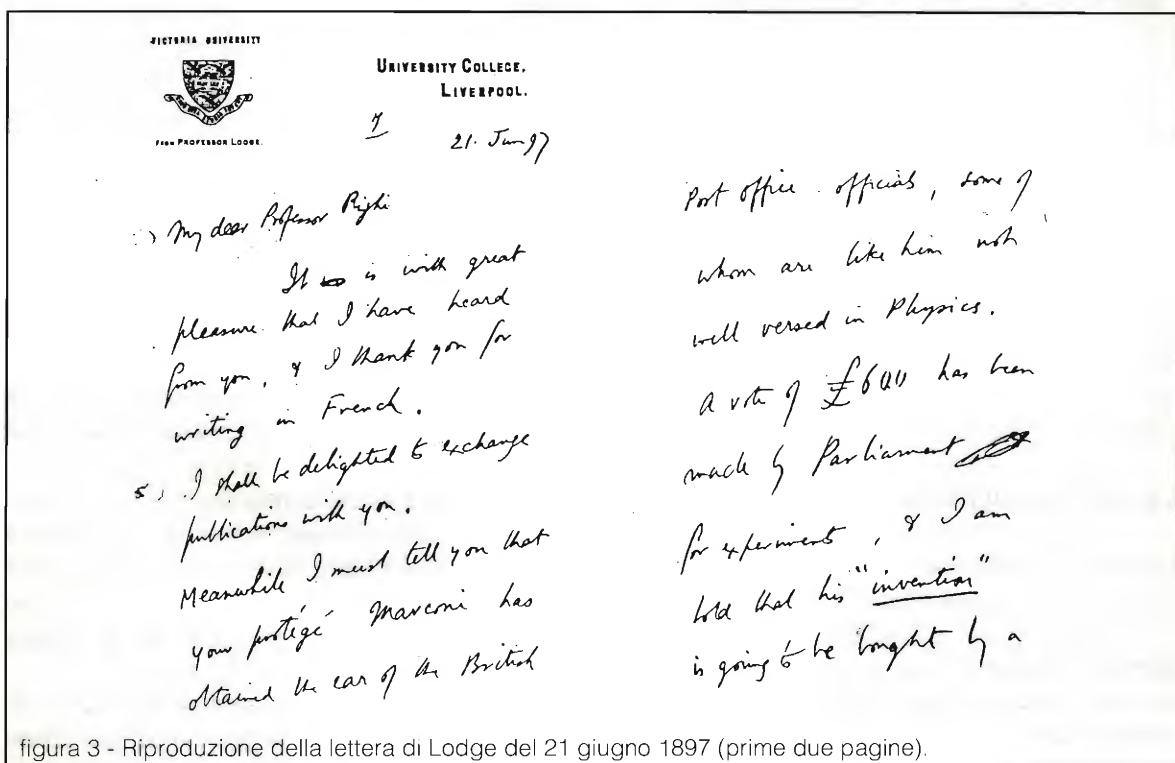 VICTORIA UNIVERSITY
FROM PROFESSOR LODGE.
UNIVERSITY COLLEGE,
LIVERPOOL.
7
21. Jun 97
My dear Professor Righi
It is with great
pleasure that I have heard
from you, & I thank you for
writing in French.
5) I shall be delighted to exchange
publications with you.
Meanwhile I must tell you that
your protégé Marconi has
obtained the ear of the British
Post office officials, some of
whom are like him not
well versed in Physics.
A vote of £600 has been
made by Parliament
for experiments, & I am
told that his "invention"
is going to be bought by a
figura 3 - Riproduzione della lettera di Lodge del 21 giugno 1897 (prime due pagine).